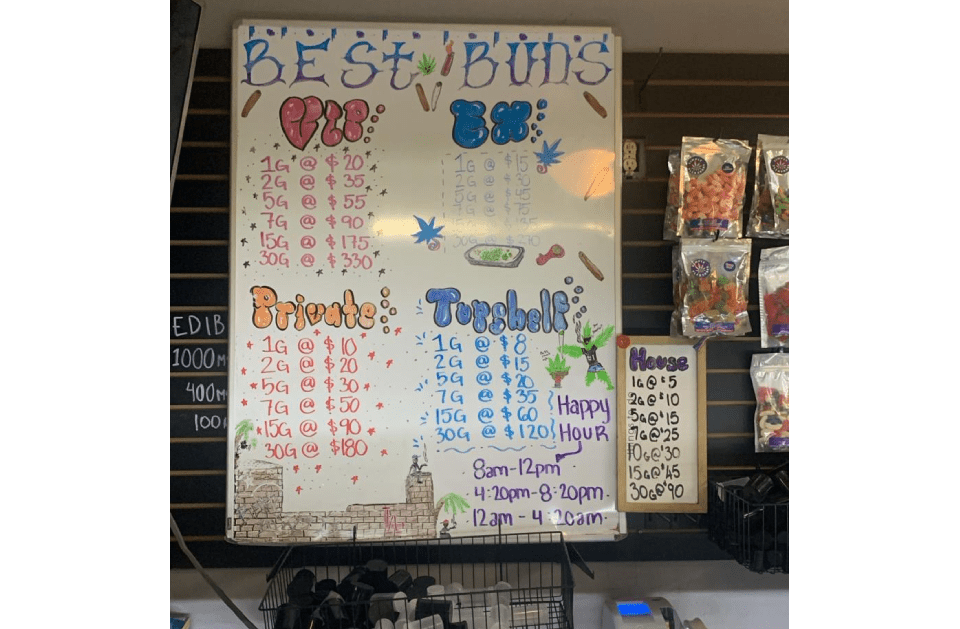 BEST BUDS
VIP
1G @ $20
2G @ $35
5G @ $55
7G @ $90
15G @ $175
30G @ $330
EX
1G @ $15
2G @
Private
1G @ $10
2G @ $20
5G @ $30
7G @ $50
15G @ $90
30G @ $180
Topshelf
1G @ $8
2G @ $15
5G @ $20
7G @ $35
15G @ $60
30G @ $120
Happy
HOUR
8am-12pm
4:20pm-8:20pm
12am-4:20am
House
1G@$5
2G@$10
5G@$15
7G@$25
10G@$30
15G@$45
30G@$90
EDIB
1000M
400M
100